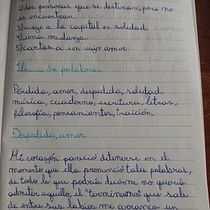 1) dos personas que se destinan, pero no
se encuentran.
2) viaje a la capital en soledad
3) una mudanza.
4) cartas a un viejo amor.
Lluvia de palabras
Perdida, amor, despedida, soledad,
música, cuaderno, escritura, letras,
filosofía, pensamientos, traición,
Despedida, amor
Mi corazón pareció detenerse en el
momento que ella pronunció tales palabras,
de todo lo que podría decirme no quería
admitir aquello, el "terminemos" que sale
de entre sus labios me